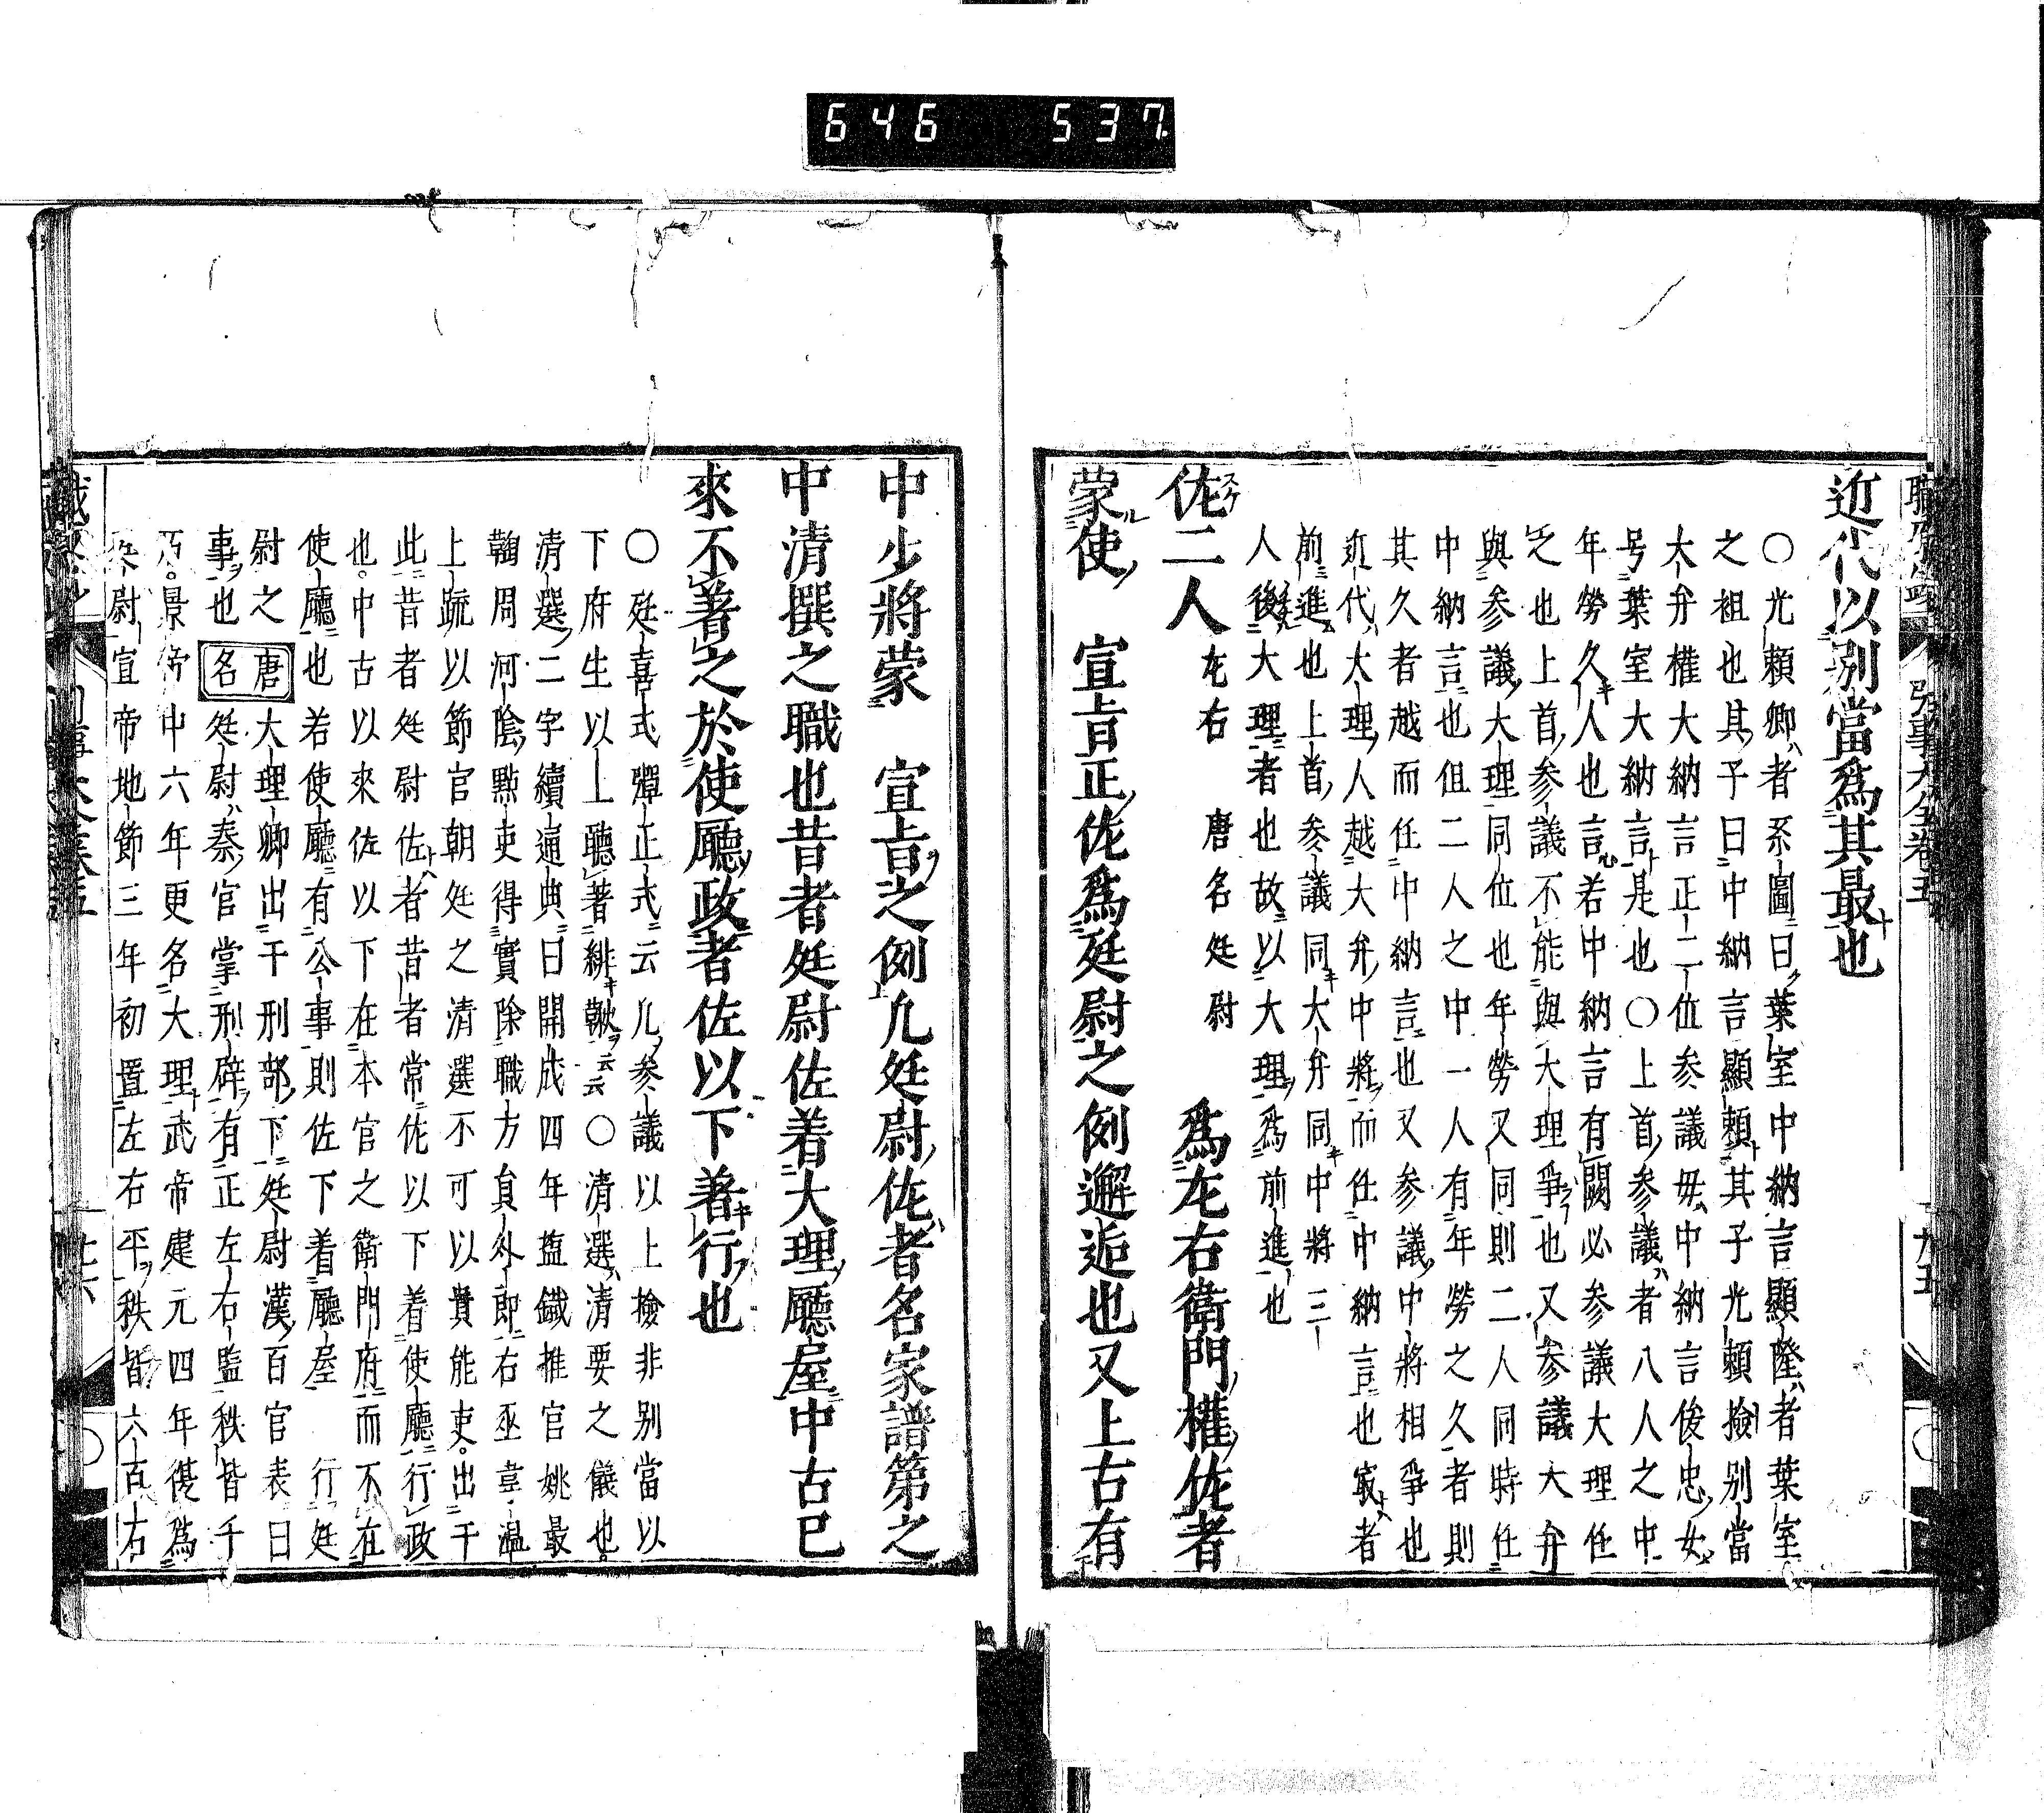 646 537
近代以別當爲其最也
○光頼卿者系圖曰葉室中納言顯隆者葉室
之祖也其子曰中納言顯頼其子光頼撿别當
太弁權大納言正二位参議毋中納言俊忠女
号葉室大納言是也○上首参議者八人之中
年勞久人也言若中納言有闕必参議大理任
之也上首参議不能與大理爭也又参議大弁
與参議大理同位也年勞又同則二人同時任
中納言也但二人之中一人有年勞之久者則
其久者越而任中納言也又参議中將相爭也
近代大理人越大弁中將而任中納言也㝡者
前進也上首参議同大弁同中將三
人後大理者也故以大理爲前進也
佐二人 左右 唐名廷尉 爲左右衛門權佐者
蒙使 宣旨正佐爲廷尉之例邂逅也又上古有
中少將蒙 宣旨之例凡廷尉佐者名家譜第之
中清撰之職也昔者廷尉佐着大理廳屋中古已
來不著之於使廳政者佐以下著行也
○延喜式彈正式云凡参議以上撿非別當以
下府生以上聽著緋靴云云○清選清要之儀也
清選二字續通典曰開成四年鹽鐵推官姚最
鞫周河陰黠吏得實除職方員外郎右丞韋温
上疏以節官朝廷之清選不可以賞能吏出于
此昔者廷尉佐者昔者常佐以下着使廳行政
也中古以來佐以下在本官之衛門府而不在
使廳也若使廳有公事則佐下着廳屋 行廷
尉之 唐 大理卿出于刑部下廷尉漢百官表曰
事也 名 廷尉秦官掌刑辟有正左右監秩皆千
石景帝中六年更名大理武帝建元四年復爲
廷尉宣帝地節三年初置左右平秩皆六百石